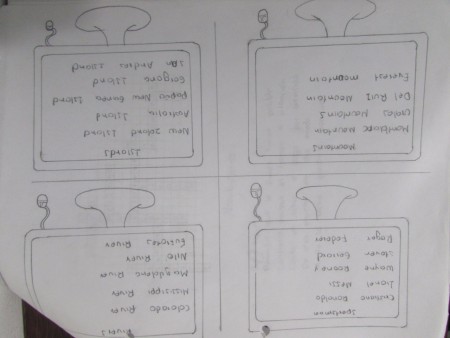 Sportsman
Cristiano Ronaldo
Lionel Messi
Wayne Rooney
Steven Gerrard
Roger Federer
Rivers
Colorado River
Mississippi River
Magdalena River
Nilo River
Eufrates River
Mountains
Mountain
Mountains
Del Ruiz Mountain
Everest mountain
Islands
New Zeland Island
Australia Island
Papua New Guinea Island
Gorgona Island
San Andres Island